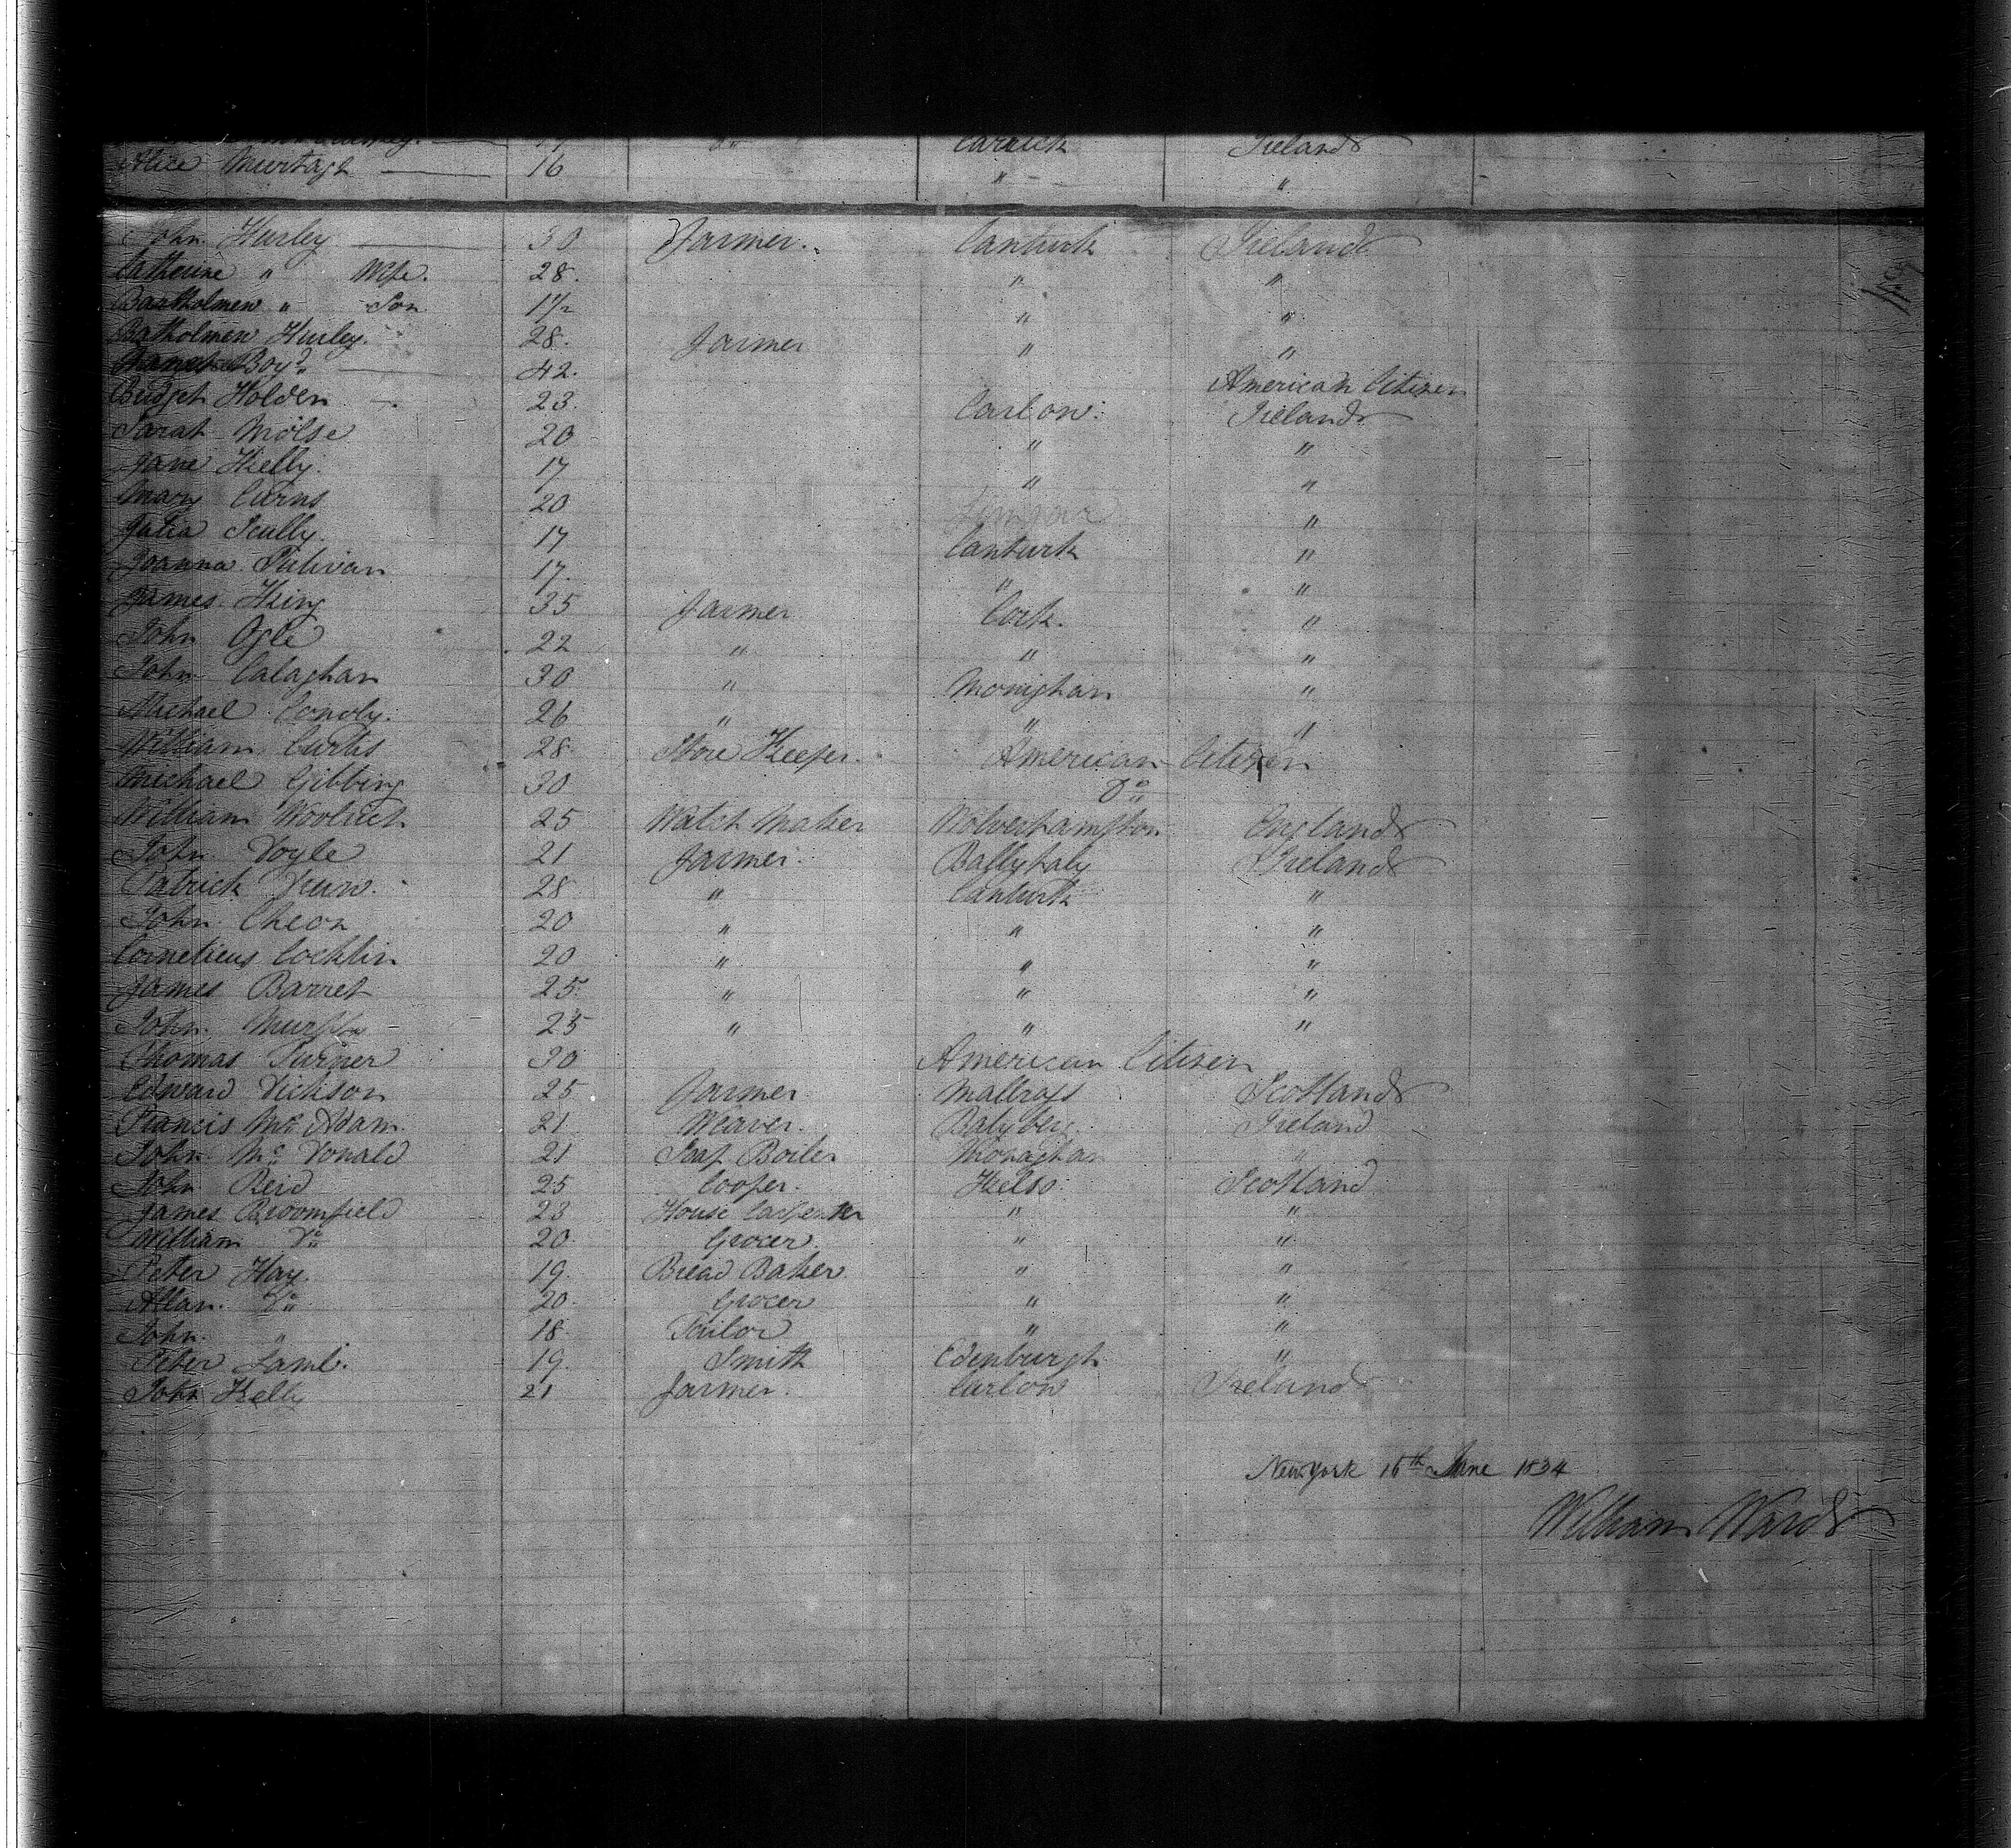 Carrick Ireland
Alice Murtagh 16 " "
John Hurley 30 Farmer. Canturk Ireland
Catherine " Wife. 28. " "
Bartholmew " Son 1 1/2 " "
Batholmew Hurley. 28. Farmer " "
Boyd 42. American Citizen
Bridget Holden 23. Carlow. Ireland
Sarah 20 " "
Jane Kelly. 17 " "
Mary Curns 20 "
Julia Scully. 17 Canturk "
Joanna Sulivan 17. " "
James King 35 Farmer Cork. "
John Ogle 22 " " "
John Calaghan 30 " Monighan "
Michael Conoly. 26 " " "
William Curtis 28 Store Keeper. American Citizen
Michael Gibbing 30 Do
William Woolrich 25 Watch Maker Wolverhampton England
John Doyle 21 Farmer. Ballyhaly Ireland
Patrick 28 " Canturk "
John Cheon 20 " " "
Cornelieus Cochlin 20 " " "
James Barret 25. " " "
John 25 " " "
Thomas Turner 30 American Citizen
Edward Dickson 25 Farmer Scotland
Francis Mc Adam. 21 Weaver. Ireland
John Mc Donald 21 Soap Boiler Monaghan "
John Reid 25 Cooper. Kelso Scotland
James Broomfield 23 House Carpenter " "
William Do 20 Grocer. " "
Peter Hay. 19. Bread Baker " "
Allan. Do 20. Grocer " "
John. " 18. Tailor " "
Peter Lamb. 19. Smith Edenburgh "
John Kelly 21 Farmer. Carlow Ireland
New York 16th June 1834
William Ward